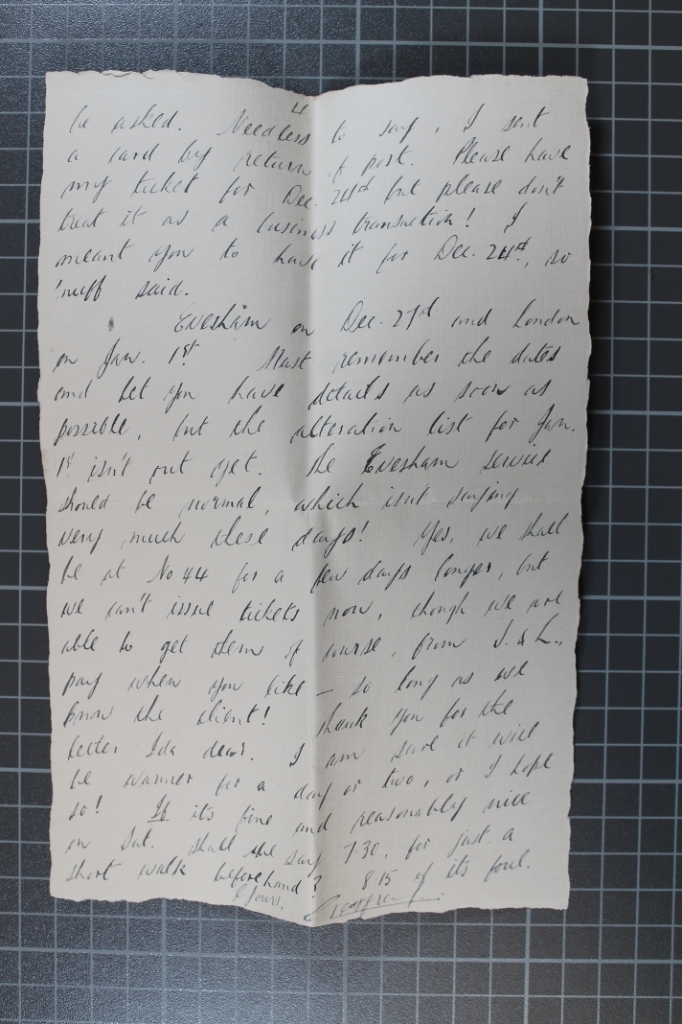 4
be asked. Needless to say, I sent
a card by return of post. Please have
my ticket for Dec. 24th but please don't
treat it as a business transaction! I
meant you to have it for Dec. 24th, so
'nuff said.
Evesham on Dec. 27th and London
on Jan. 1st. Must remember the dates
and let you have details as soon as
possible, but the alteration list for Jan.
1st isn't out yet. The Evesham service
should be normal, which isn't saying
very much these days! Yes, we shall
be at No 44 for a few days longer, but
we can't issue tickets now, though we are
able to get them of course, from
pay when you like – so long as we
know the client! Thank you for the
letter Ida dear. I am sure it will
be warmer for a day or two, or I hope
so! If its fine and reasonably nice
on Sat. shall we say 7.30, for just a
short walk beforehand? 8.15 if its foul.
Yours,